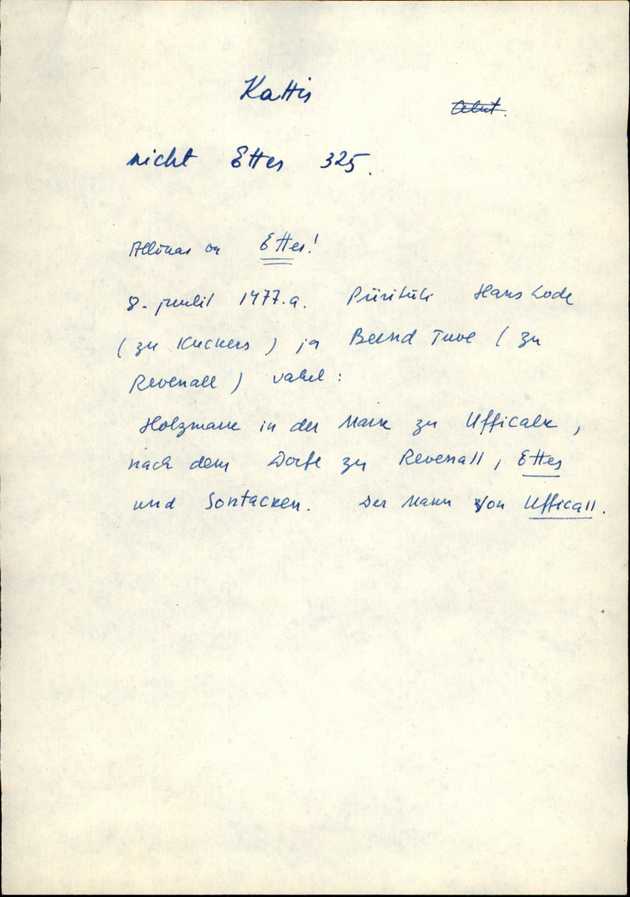 Kattis
nicht Ettes 325.
Allikas on Ettes!
8. juulil 1477.a. Piiritüli Hans Lode
(zu Kuckers) ja Bernd Tuve (zu
Revenall) vahel:
Holzmark in der Mark zu Ufficalx,
nach dem Dorfe zu Revenall, Ettes
und Sontacken. Der Mann von Ufficall.